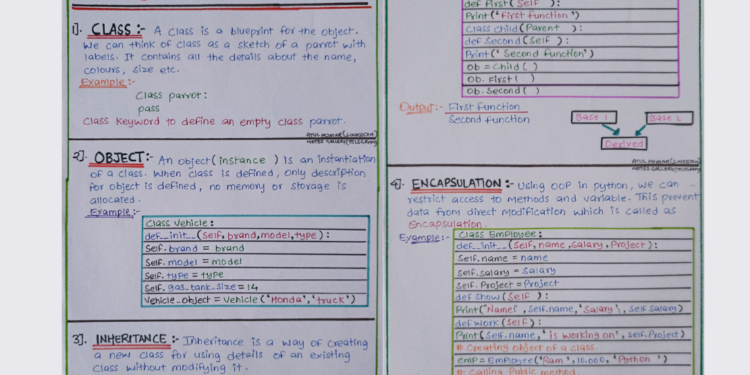 1]. CLASS :- A class is a blueprint for the object.
We can think of class as a sketch of a parrot with
labels. It contains all the details about the name,
colours, size etc.
Example :-
Class parrot :
pass
Class Keyword to define an empty class parrot.
2]. OBJECT :- An object (instance) is an instantiation
of a class. When class is defined, only description
for object is defined, no memory or storage is
allocated.
Example :-
Class Vehicle :
def__init__(Self, brand, model, type) :
Self.brand = brand
Self.model = model
Self.type = type
Self.gas_tank_size = 14
Vehicle_object = Vehicle('Honda', 'truck')
3]. INHERITANCE :- Inheritance is a way of creating
a new class for using details of an existing
class without modifying it.
def First(Self ) :
Print('First function ')
Class Child(Parent ) :
def Second(Self ) :
Print(' Second function')
Ob = Child( )
Ob. First( )
Ob. Second( )
Output :- First function
Second function
Base 1 Base 2
Derived
4]. ENCAPSULATION :- Using OOP in python, we can
restrict access to methods and variable. This prevent
data from direct modification which is called as
Encapsulation.
Example :- Class Employee :
def__init__(Self, name, Salary, Project) :
Self.name = name
Self.salary = Salary
Self.Project = Project
def Show(Self ) :
Print('Name', Self.name, 'Salary', Self Salary)
def work(Self) :
Print(Self.name, ' is working on', Self.Project)
# Creating object of a class
emp = Employee('Ram', 10,000, 'Python ')
# Calling Public method